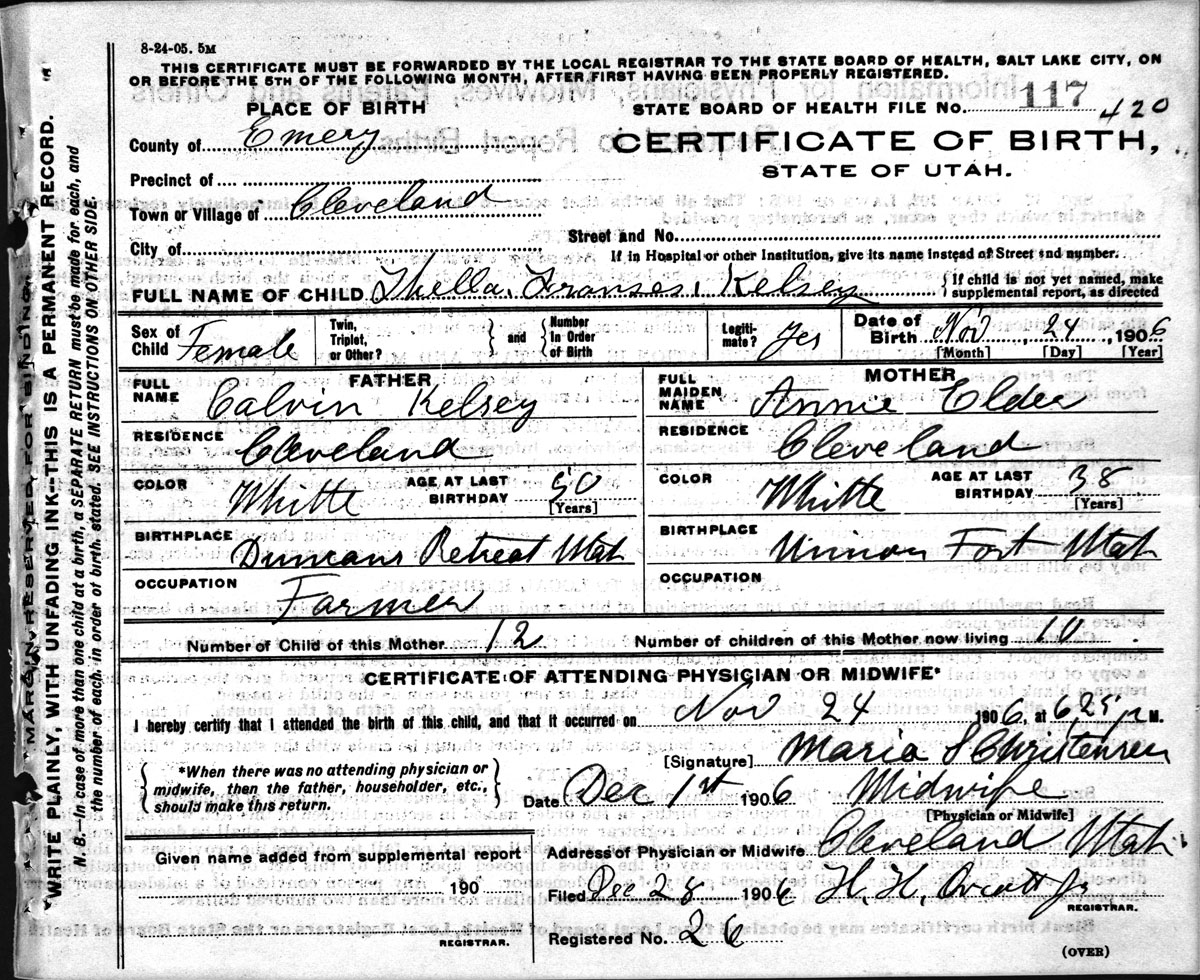 8-24-05. 5M
THIS CERTIFICATE MUST BE FORWARDED BY THE LOCAL REGISTRAR TO THE STATE BOARD OF HEALTH, SALT LAKE CITY, ON
OR BEFORE THE 5TH OF THE FOLLOWING MONTH, AFTER FIRST HAVING BEEN PROPERLY REGISTERED.
PLACE OF BIRTH
STATE BOARD OF HEALTH FILE NO. 117 420
County of Emery
CERTIFICATE OF BIRTH,
STATE OF UTAH.
Precinct of
Town or Village of Cleveland
City of
Street and No.
If in Hospital or other Institution, give its name instead of Street and number.
FULL NAME OF CHILD Thella. Franses. Kelsey
{If child is not yet named, make
supplemental report, as directed
Sex of Child Female
Twin, Triplet, or Other? } and { Number In Order of Birth
Legitimate? Yes
Date of Birth Nov, 24, 1906
[Month] [Day] [Year]
FATHER
FULL NAME Calvin Kelsey
RESIDENCE Cleveland
COLOR Whitte AGE AT LAST BIRTHDAY 50
[Years]
BIRTHPLACE Duncans Retreat Utah
OCCUPATION Farmer
MOTHER
FULL MAIDEN NAME Annie Elder
RESIDENCE Cleveland
COLOR Whitte AGE AT LAST BIRTHDAY 38
[Years]
BIRTHPLACE Uinion Fort Utah
OCCUPATION
Number of Child of this Mother 12 Number of children of this Mother now living 10
CERTIFICATE OF ATTENDING PHYSICIAN OR MIDWIFE*
I hereby certify that I attended the birth of this child, and that it occurred on Nov 24 1906, at P M.
[Signature] Maria S Christensen
{ *When there was no attending physician or
midwife, then the father, householder, etc.,
should make this return. }
Date Dec 1st 1906 Midwife
[Physician or Midwife]
Given name added from supplemental report
190
REGISTRAR.
Address of Physician or Midwife Cleveland Utah
Filed Dec 28 1906 H. H. Jr
REGISTRAR.
Registered No. 26
(OVER)
MARGIN RESERVED FOR BINDING
WRITE PLAINLY, WITH UNFADING INK--THIS IS A PERMANENT RECORD.
N. B.—In case of more than one child at a birth, a SEPARATE RETURN must be made for each, and
the number of each, in order of birth, stated. SEE INSTRUCTIONS ON OTHER SIDE.